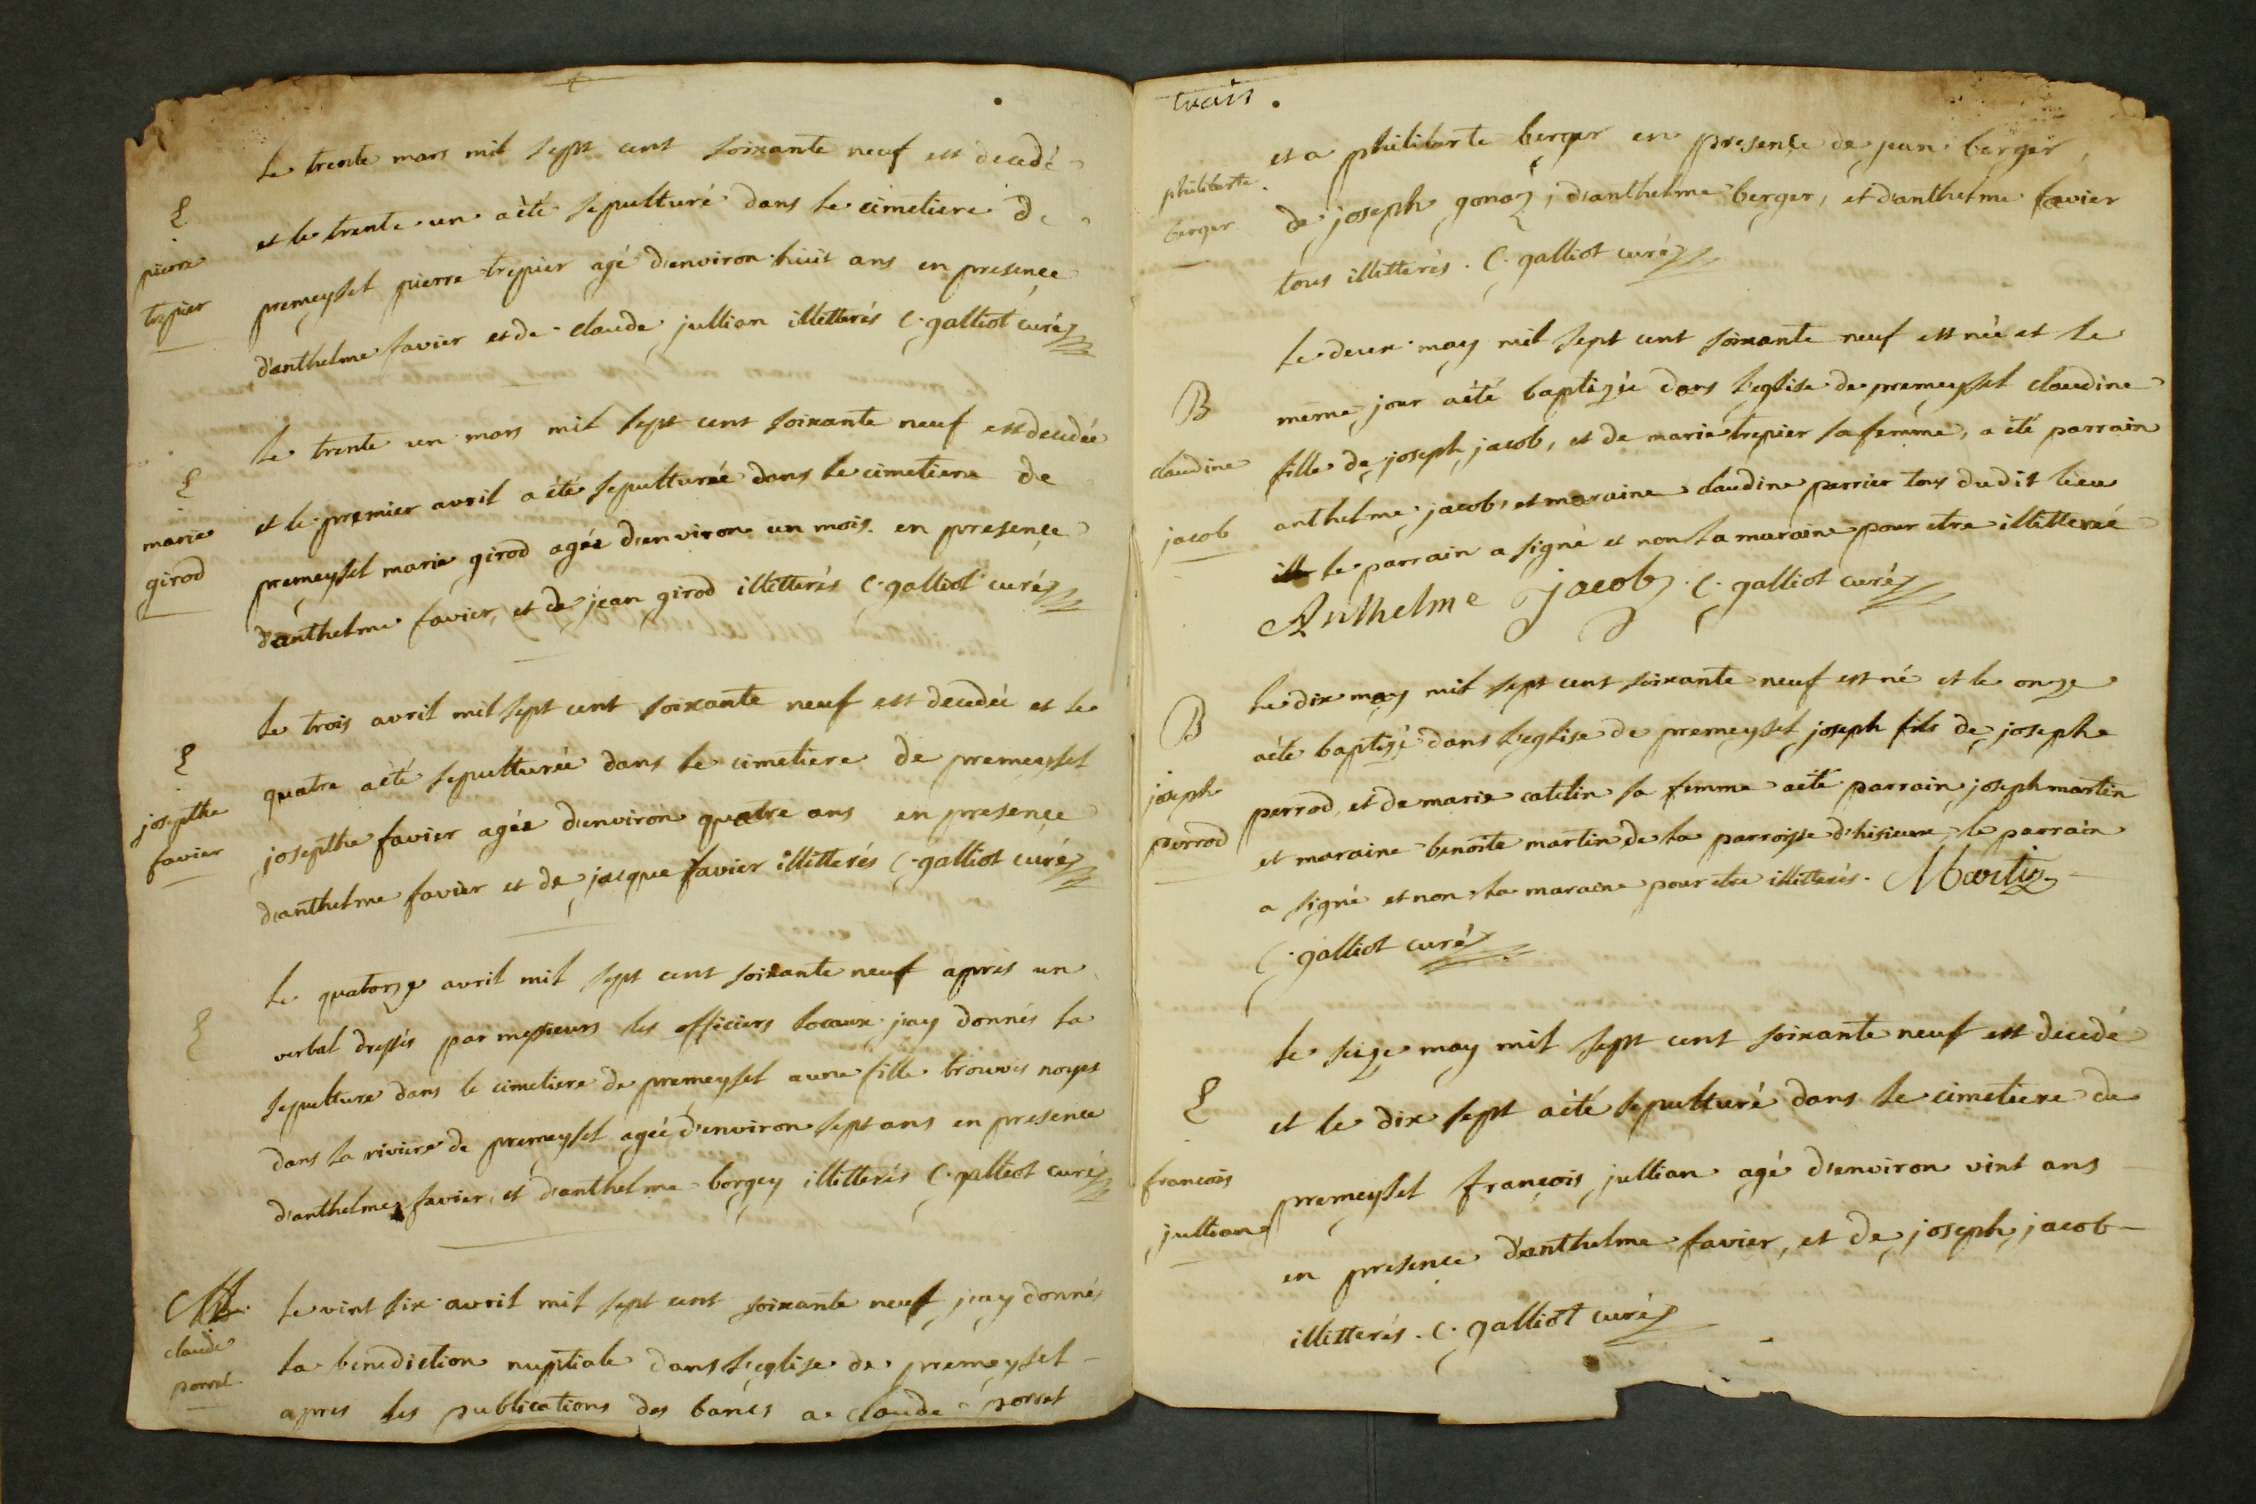 le trente mars mil sept cent soixante neuf est decedé
et le trente un aèté sepulturé dans le cimetiere de
premeyset pierre trepier agé d'environ huit ans en presençe
d'anthelme favier et de claude jullian illitterés C. galliot curé
pierre
trepier
le trente un mars mil sept cent soixante neuf est decedée
et le premier avril a èté sepulturée dans le cimetiere de
premeyset marie girod agée d'environ un mois en presençe
d'anthelme favier, et de jean girod illitterés C. galliot curé
marie
girod
le trois avril mil sept cent soixante neuf est decedée et le
quatre aèté sepulturée dans le cimetiere de premeyset
josepthe favier agée d'environ quatre ans en presençe
d'anthelme favier et de jacque favier illitterés C. galliot curé
josepthe
favier
le quatorze avril mil sept cent soixante neuf apprés un
verbal dressés par messieurs les officiers locaux j'ay donnés la
sepulture dans le cimetiere de premeyset a une fille trouvés noyés
dans la riviere de premeyset agée d'environ sept ans en presence
d'anthelme favier, et d'anthelme borgey illitterés C. galliot curé
M
claude
porret
le vint six avril mil sept cent soixante neuf j'ay donnés
la benediction nuptiale dans l'eglise de premeyset
apres les publications des bancs a claude porret
trois
philiberte
berger
et a philiberte berger en presençe de jean berger,
de joseph gonaz, d'anthelme berger, et d'anthelme favier
tous illitterés. C. galliot curé
le deux may mil sept cent soixante neuf est née et le
même jour aété baptizée dans l'eglise de premeyset claudine
fille de joseph jacob, et de marie trepier sa femme, a été parrain
anthelme jacob, et maraine claudine perrier tous dudit lieu
le parrain a signé et non la maraine pour etre illitterée
Anthelme jacob C. galliot curé
B
claudine
jacob
le dix may mil sept cent soixante neuf est né et le onze
aéte baptizé dans l'eglise de premeyset joseph fils de josephe
perrod, et de marie catelin sa femme aété parrain joseph martin
et maraine benoite martin de la parroisse d'hisieux, le parrain
a signé et non la maraine pour etre illitterés. Martin
C. galliot curé
B
joseph
perrod
le seize may mil sept cent soixante neuf est decedé
et le dix sept aété sepulturé dans le cimetiere de
premeyset françois jullian agé d'environ vint ans
en presence d'anthelme favier, et de joseph jacob
illitterés. C. galliot curé
francois
jullian